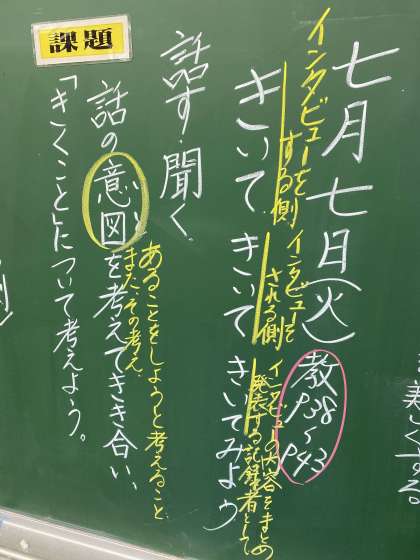 美しくする。
七月七日(火)
教
P38
〜
P43
インタビューを
する側
インタビューを
される側
インタビューの内容をまとめ
発表する記録者として
きいて きいて きいてみよう
話す・聞く。
課題
話の意図を考えてきき合い、
いと
あることをしようと考えること、
また、その考え。
「きくこと」について考えよう。